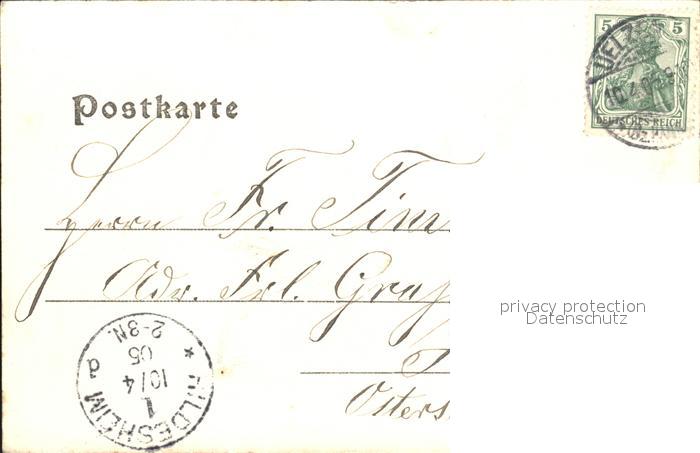 5 5
UELZEN
10.4.05
DEUTSCHES REICH
Postkarte
Herrn Fr. Tim
Adr. Frl. Grap
privacy protection
Datenschutz
Osters
* HILDESHEIM d
1
10/4
05
2-3N.